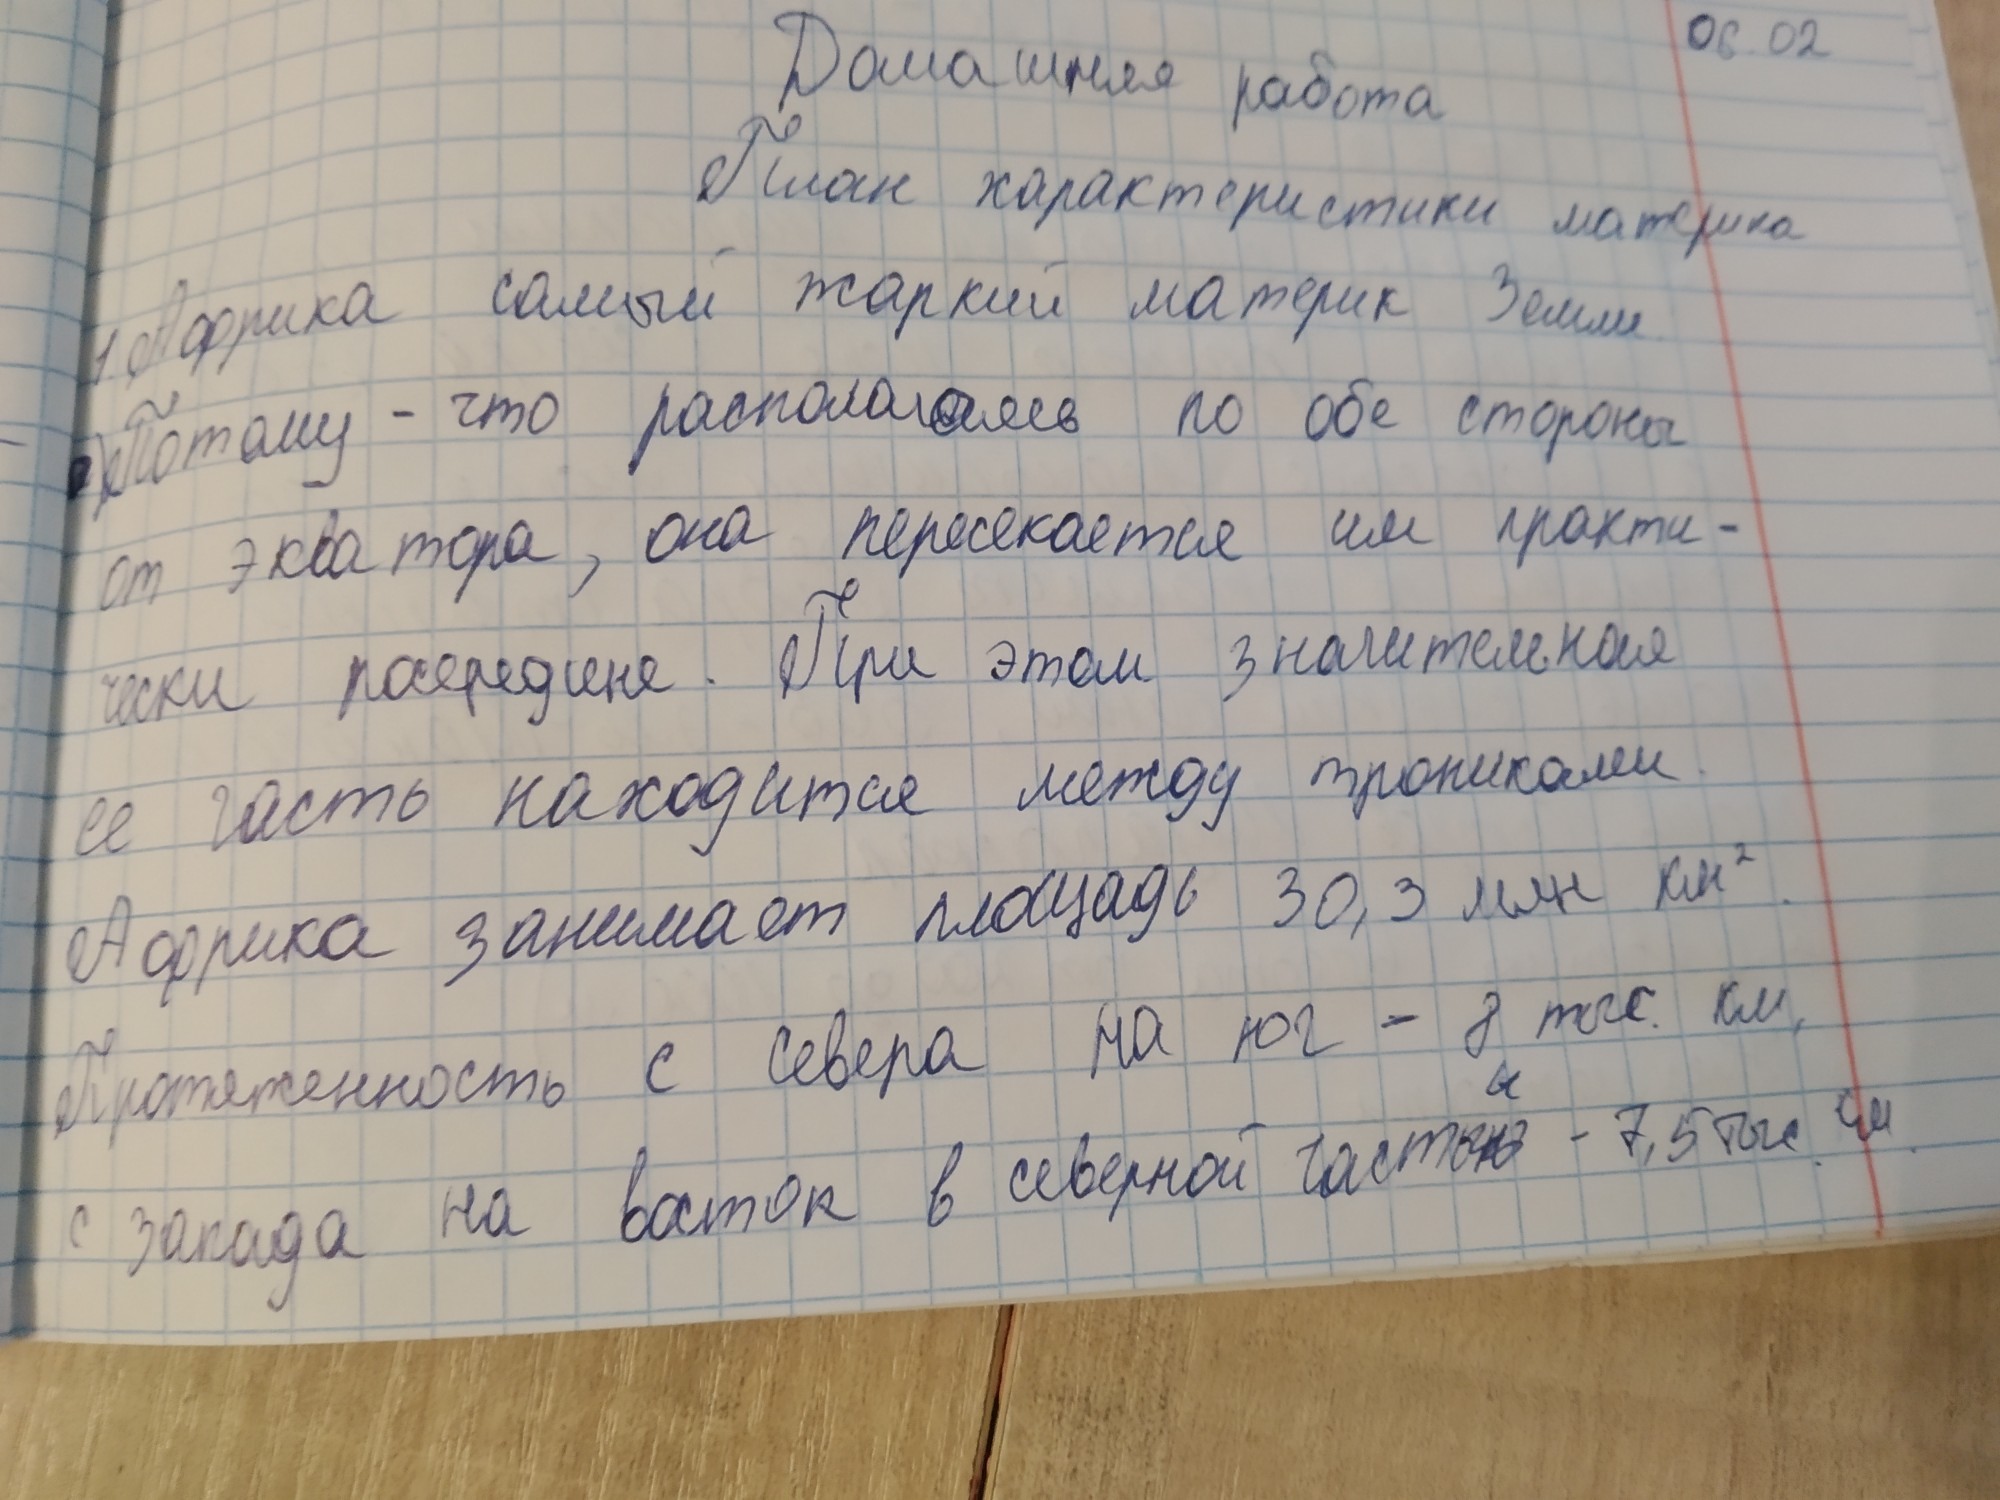 06.02
Домашняя работа
План характеристики материка
1. Африка самый жаркий материк Земли.
Потому - что располагаясь по обе стороны
от экватора, она пересекается им практи-
чески посередине. При этом значительная
ее часть находится между тропиками.
Африка занимает площадь 30,3 млн км².
Протяженность с севера на юг - 8 тыс. км,
с запада на восток в северной части - 7,5 тыс. км.